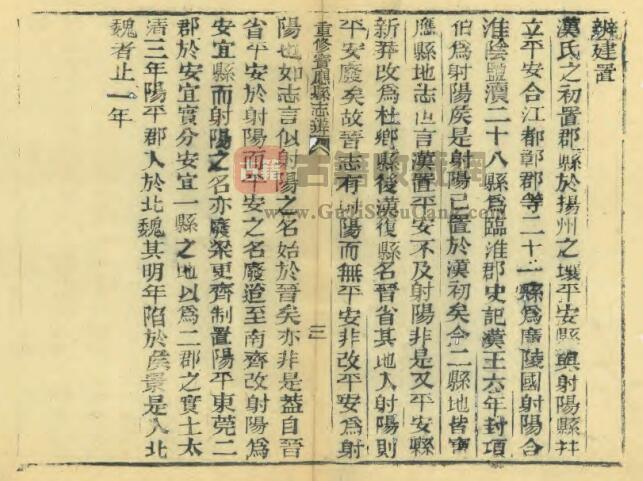 辨建置
漢氏之初置郡縣於揚州之壤平安縣與射陽縣幷
立平安合江都鄣郡等二十一縣爲廣陵國射陽合
淮陰鹽瀆二十八縣爲臨淮郡史記漢王六年封項
伯爲射陽矦是射陽已置於漢初矣今二縣地皆寶
應縣地志也言漢置平安不及射陽非是又平安縣
新莽改爲杜鄉縣後漢復縣名晉省其地入射陽則
平安廢矣故晉志有射陽而無平安非改平安爲射
重修寶應縣志辨 三
陽也如志言似射陽之名始於晉矣亦非是葢自晉
省平安於射陽而平安之名廢迨至南齊改射陽爲
安宜縣而射陽之名亦廢梁更齊制置陽平東莞二
郡於安宜實分安宜一縣之地以爲二郡之實土太
淸三年陽平郡入於北魏其明年陷於矦景是入北
魏者止一年
古籍收藏網
www.GujiShouCang.com
古籍